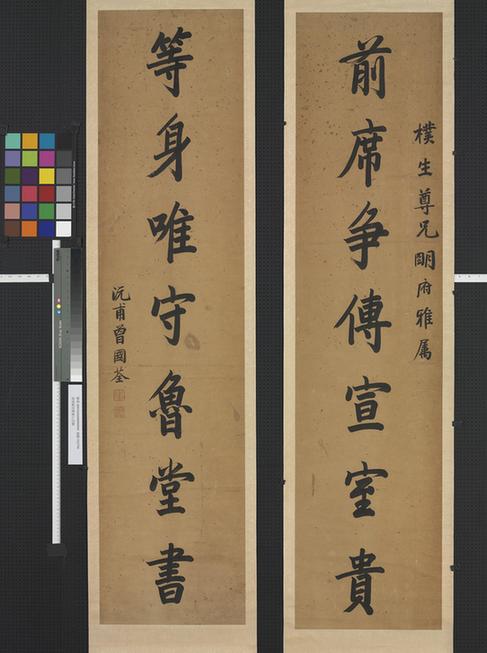 樸生尊兄明府雅属
前席争傳宣室貴
等身唯守魯堂書
沅甫曾國荃